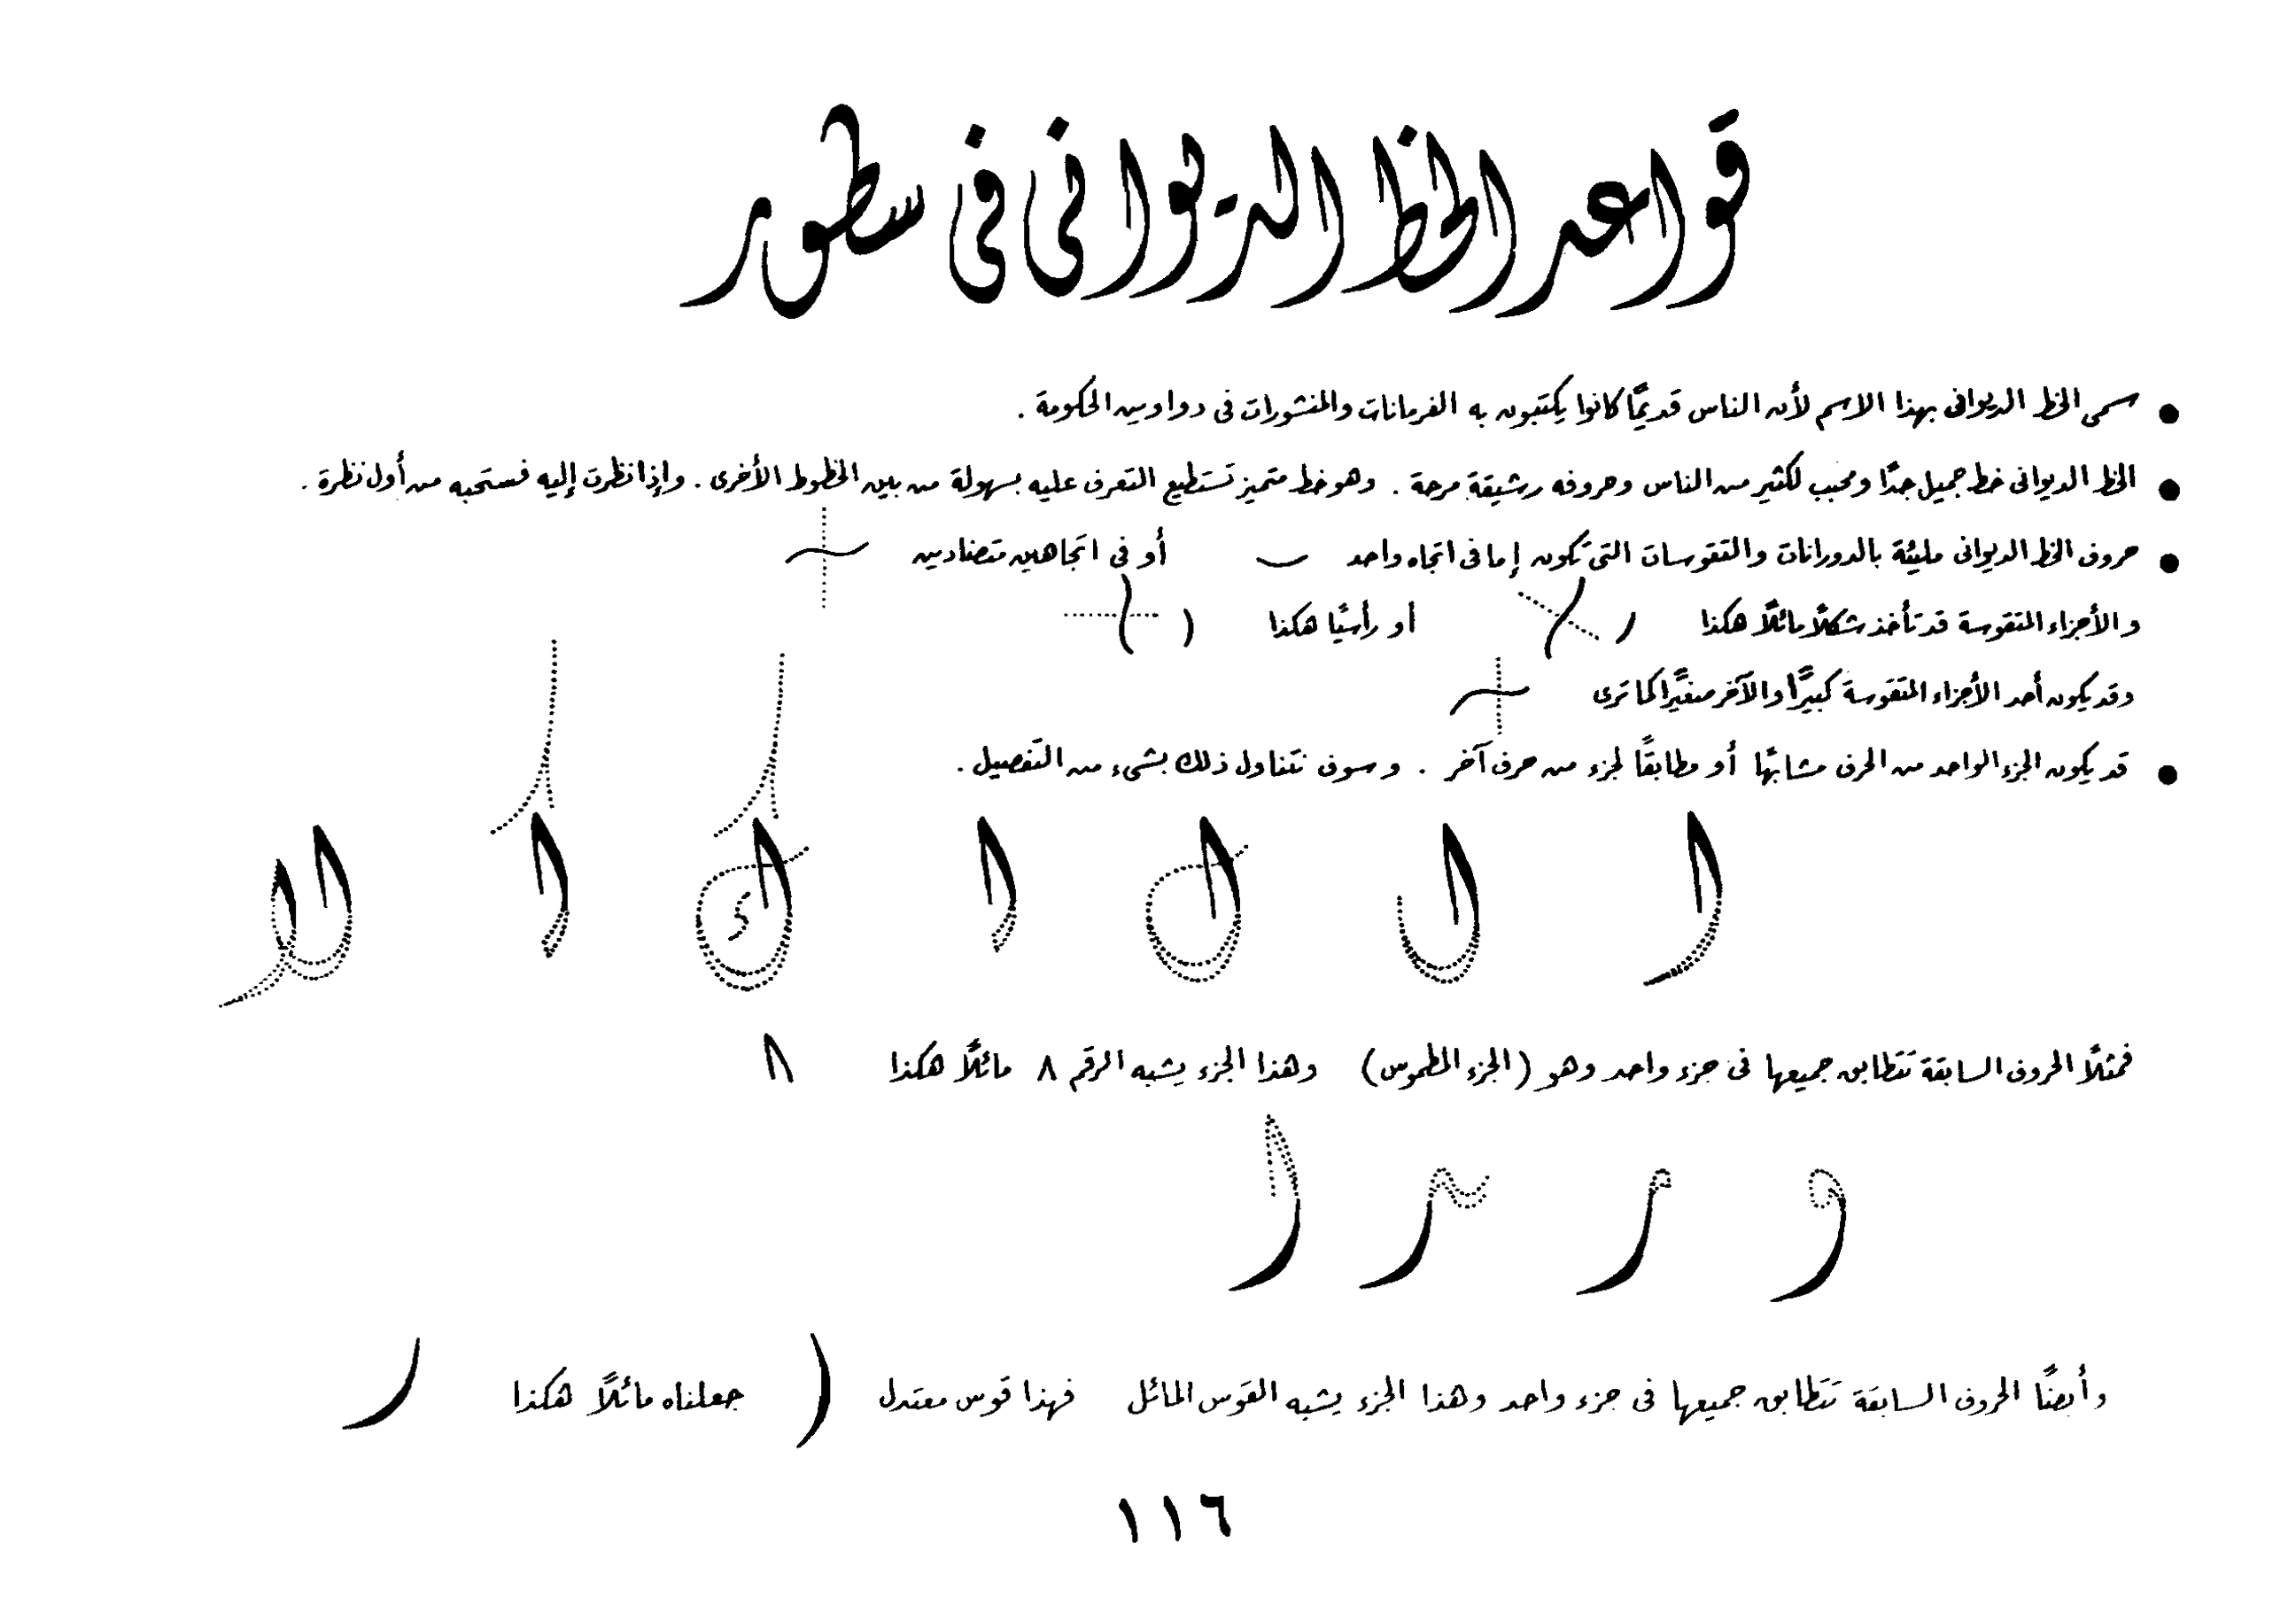 قواعد الخط الديوانى فى سطور
● سمى الخط الديوانى بهذا الاسم لأن الناس قديمًا كانوا يكتبون به الفرمانات والمنشورات فى دواوين الحكومة .
● الخط الديوانى خط جميل جدًا ومحبب لكثير من الناس وحروفه رشيقة مرحة . وهو خط متميز تستطيع التعرف عليه بسهولة من بين الخطوط الأخرى . وإذا نظرت إليه فستحبه من أول نظرة .
● حروف الخط الديوانى مليئة بالدورانات والتقوسات التى تكون إما فى اتجاه واحد أو فى اتجاهين متضادين
والأجزاء المتقوسة قد تأخذ شكلًا مائلًا هكذا أو رأسيًا هكذا
وقد يكون أحد الأجزاء المتقوسة كبيرًا والآخر صغيرًا كما ترى
● قد يكون الجزء الواحد من الحرف مشابهًا أو مطابقًا لجزء من حرف آخر . وسوف نتناول ذلك بشىء من التفصيل .
فمثلًا الحروف السابقة تتطابق جميعها فى جزء واحد وهو (الجزء المطموس) وهذا الجزء يشبه الرقم ٨ مائلًا هكذا
وأيضًا الحروف السابقة تتطابق جميعها فى جزء واحد وهذا الجزء يشبه القوس المائل فهذا قوس معتدل ) جعلناه مائلًا هكذا
١١٦